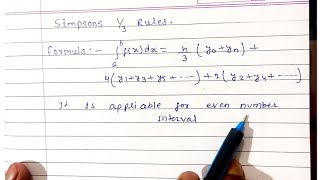 Simpsons 1/3 Rules.
Formula:- ∫ₐᵇ f(x)dx = h/3 (y₀+yₙ) +
4(y₁+y₃+y₅+----)+2(y₂+y₄+-----)
It is appliable for even number
interval